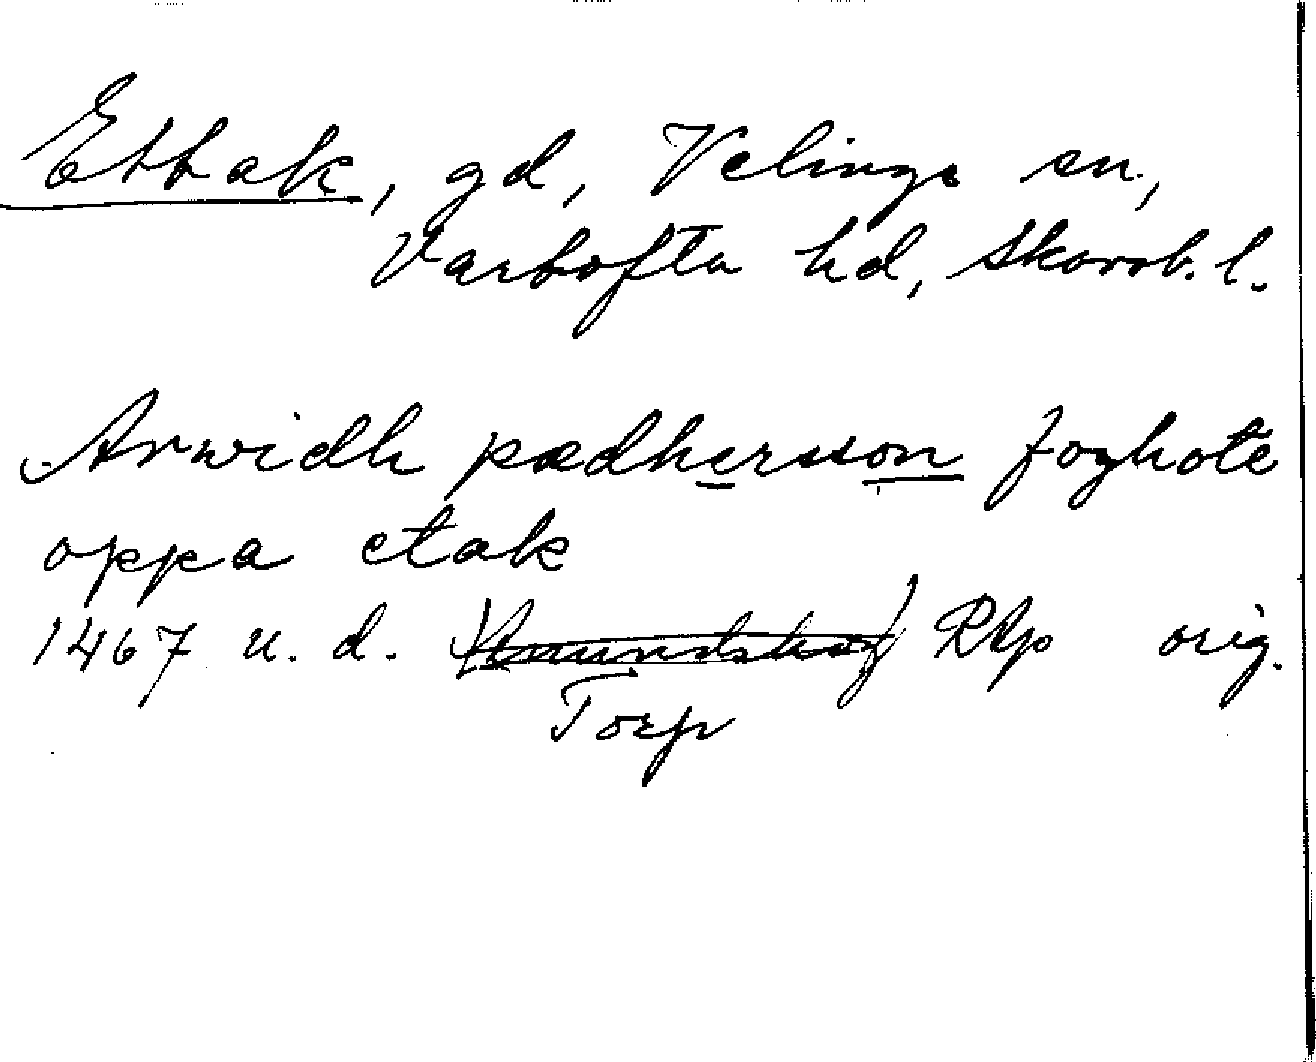 Ettak, gd, Velinge sn,
Vartofta hd, Skarab. l.
Arwidh pædhersson foghote
oppa etak
1467 u. d. Amundstorp RAp orig.
Torp